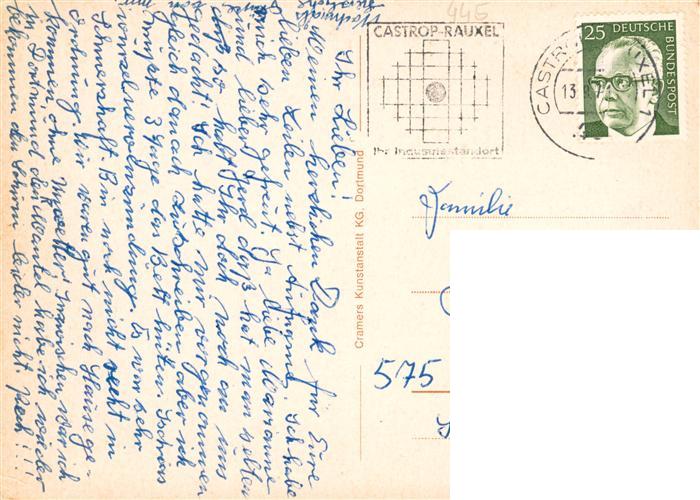 445
CASTROP-RAUXEL
Ihr Industriestandort
CASTRO
UXEL 1
13.
25
DEUTSCHE
BUNDESPOST
Familie
575
Cramers Kunstanstalt KG. Dortmund
Ihr Lieben!
Meinen herzlichen Dank für Eure
lieben Zeilen nebst Aufnahme. Ich habe
mich sehr gefreut. Ja liebe Marianne
und lieber Gerd daß man selten
so habt Ihr doch noch an uns
gedacht. Ich hatte mir vorgenommen
gleich danach zu schreiben aber ich
mußte 3 Tag das Bett hüten. Ischias
entzündung. Es war sehr
schmerzhaft. Bin noch nicht recht in
Ordnung. Wir waren gut nach Hause ge-
kommen, ohne Inzwischen war ich
in Dortmund den Mantel habe ich wieder
bekommen den Schirm leider nicht Pech!!!